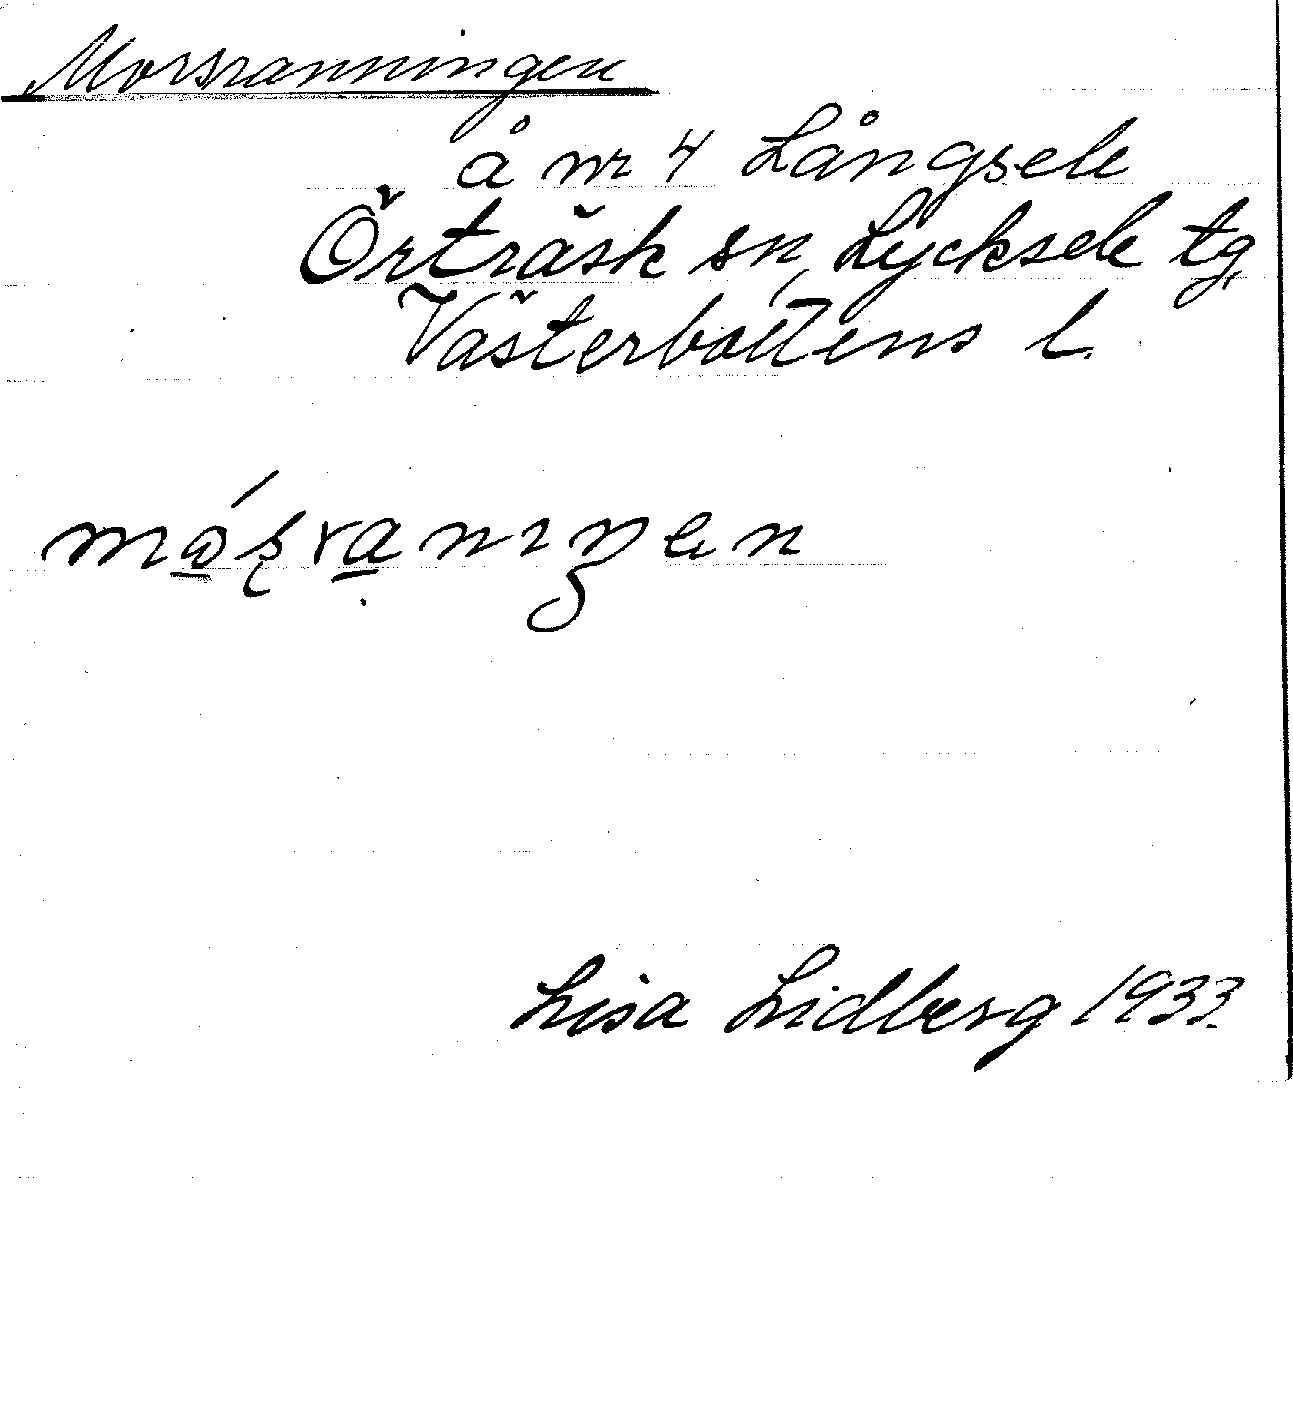 Morsranningen
å nr 4 Långsele
Örträsk sn, Lycksele tg
Västerbottens l.
Lisa Lidberg 1933.